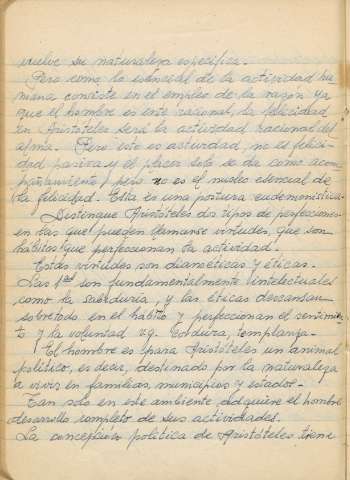 vuelve su naturaleza específica.
Pero como lo esencial de la actividad hu
mana consiste en el empleo de la razón ya
que el hombre es ente racional, la felicidad
en Aristóteles será la actividad racional del
alma. Pero esto es actividad, no es felici-
dad pasiva y el placer solo se da como acom
pañamiento, pero no es el nucleo esencial de
la felicidad. Esta es una postura eudemonística.
Distingue Aristóteles dos tipos de perfecciones
en las que pueden llamarse virtudes, que son
hábitos que perfeccionan la actividad.
Estas virtudes son dianoéticas y éticas.
Las 1as son fundamentalmente intelectuales
como la sabiduría, y las éticas descansan
sobretodo en el hábito y perfeccionan el sentimien
to y la voluntad v.g. cordura, templanza.
El hombre es para Aristóteles un animal
político, es decir, destinado por la naturaleza
a vivir en familias, municipios y estados.
Tan solo en este ambiente adquiere el hombre
desarrollo completo de sus actividades.
La concepción política de Aristóteles tiene